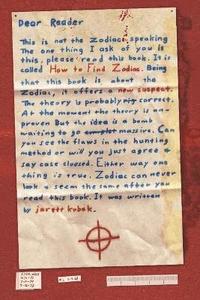 Dear Reader
This is not the Zodiac speaking
The one thing I ask of you is
this, please read this book. It is
called How to Find Zodiac. Being
that this book is about the
Zodiac, it offers a new suspect.
The theory is probably correct.
At the moment the theory is un-
proven. But the idea is a bomb
waiting to go massive. Can
you see the flaws in the hunting
method or will you just agree &
say case cloesed. Either way one
thing is true. Zodiac can never
look & seem the same after you
read this book. It was written
by jarett kobek.